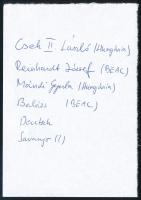 Cseh II László (Hungária)
Reinhardt József (BEAC)
Mándi Gyula (Hungária)
Balázs (BEAC)
Deutsch
Savanyó (?)